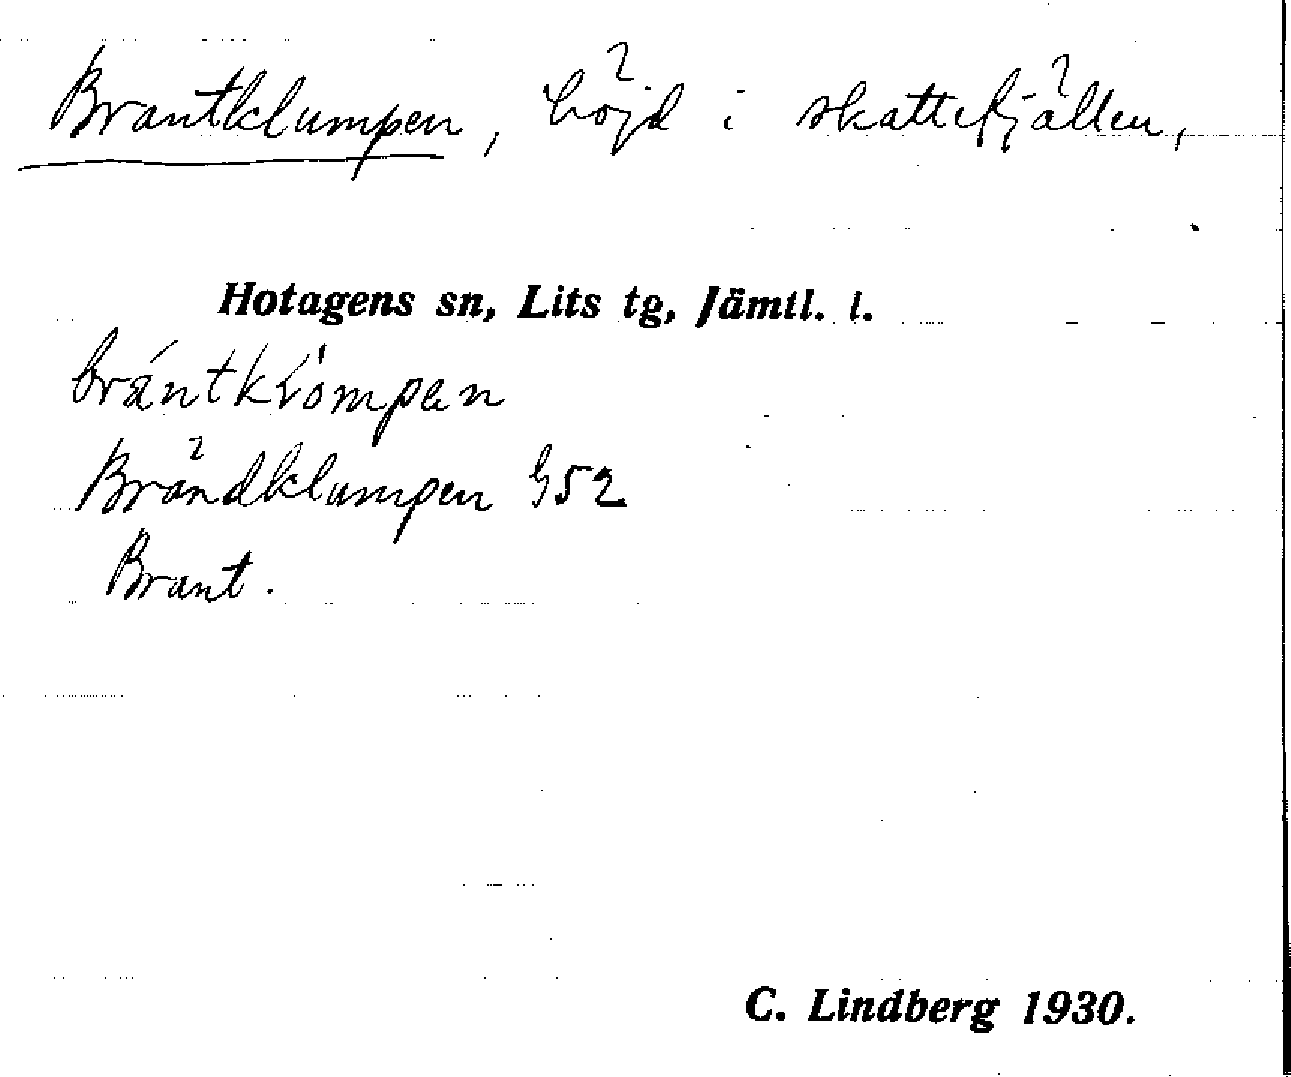 Brantklumpen, höjd i skattefjällen,
Hotagens sn, Lits tg, Jämtl. l.
Brändklumpen G52
Brant.
C. Lindberg 1930.